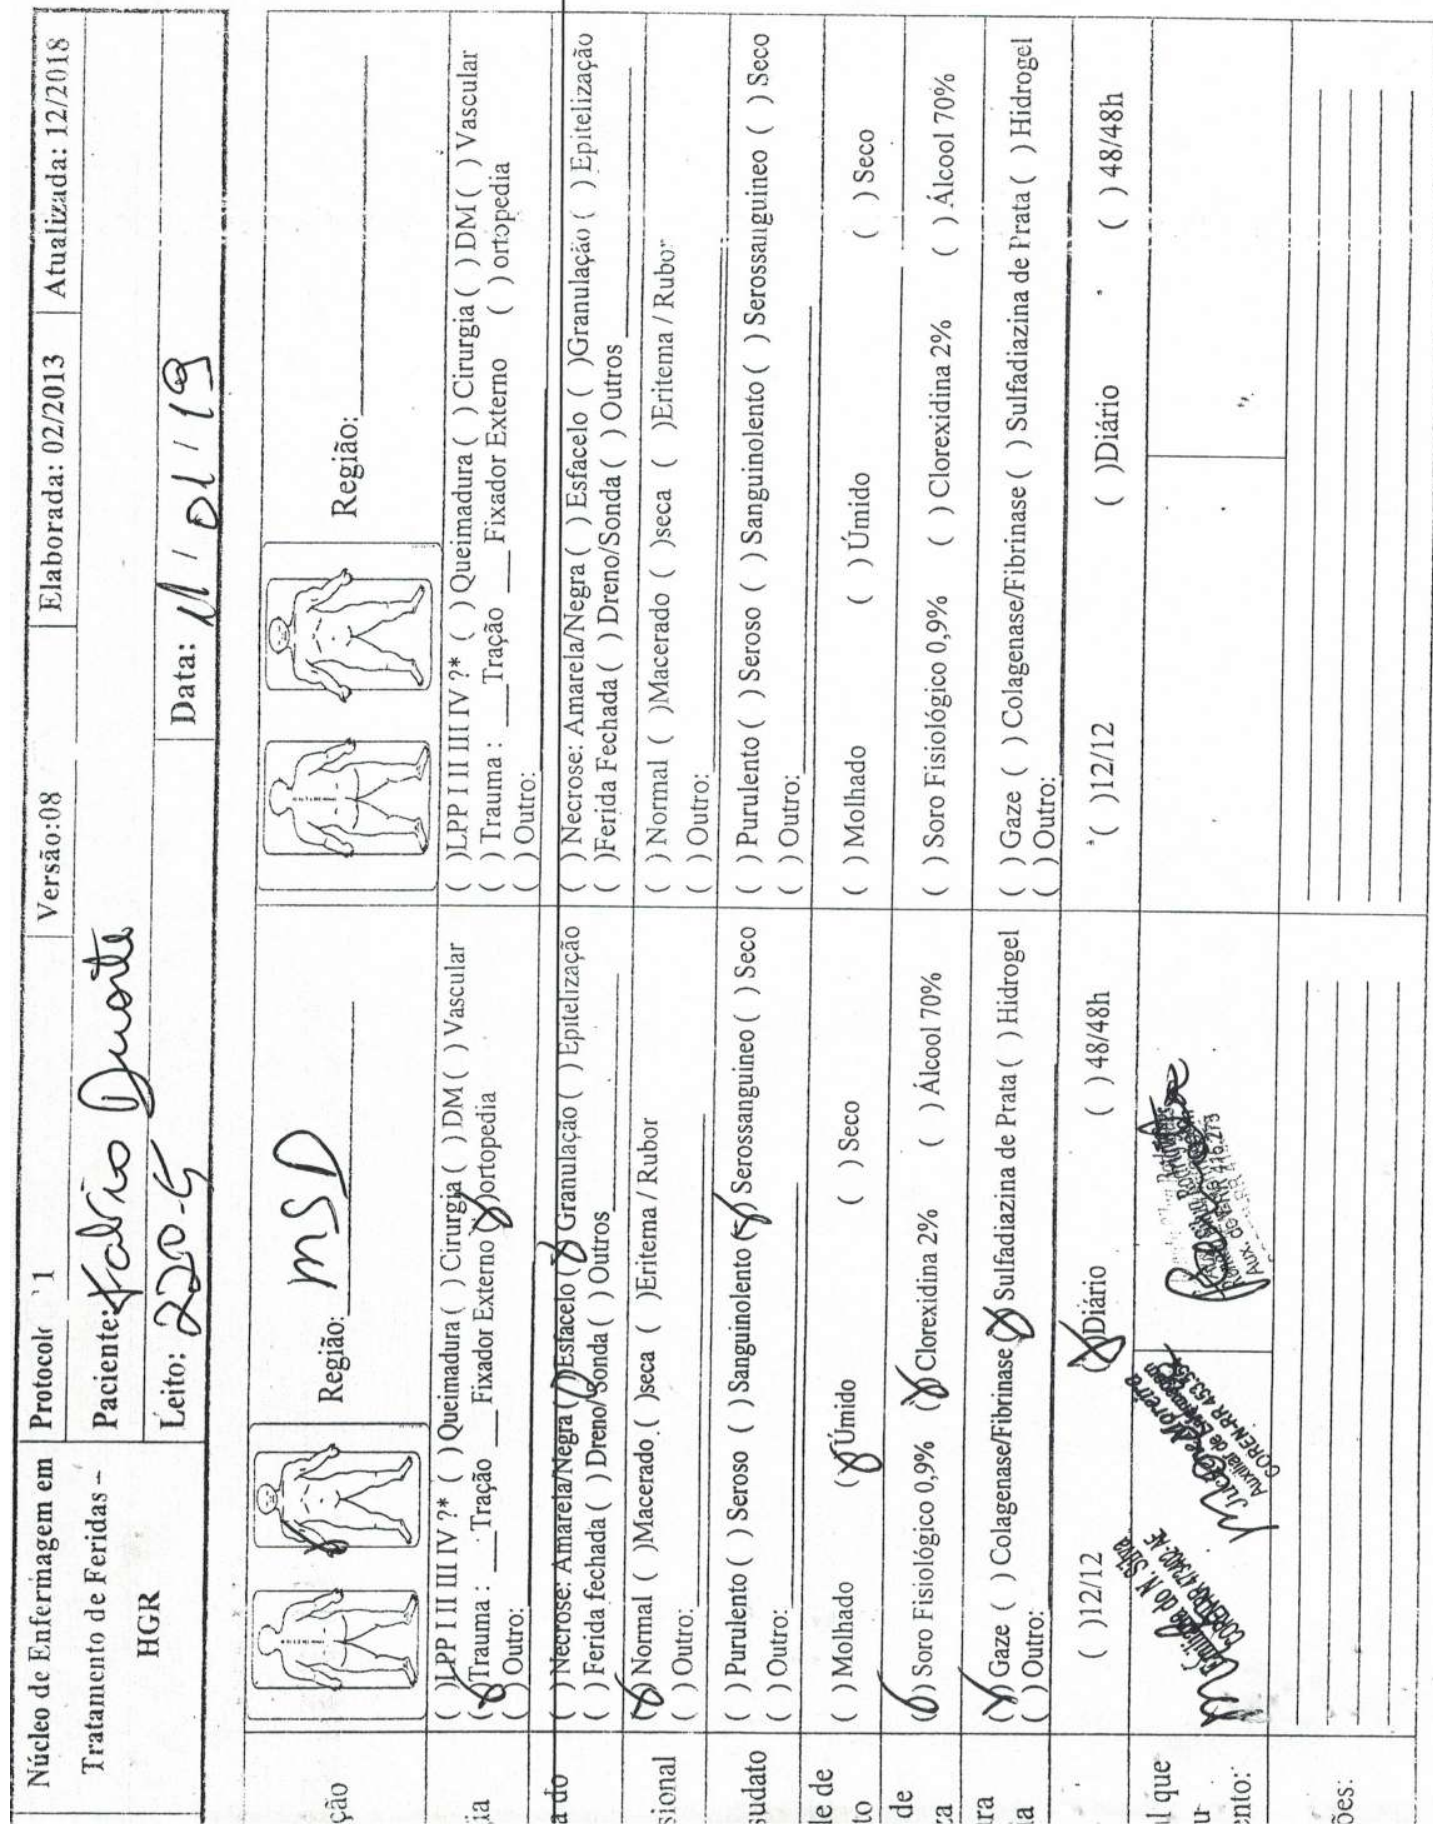 Núcleo de Enfermagem em
Tratamento de Feridas –
HGR
Protocolo 1
Versão:08
Elaborada: 02/2013
Atualizada: 12/2018
Paciente: Fabrio Duarte
Leito: 220-5
Data: 11/01/19
ção
Região: MSD
Região:
gia
( )LPP I II III IV ?* ( ) Queimadura ( ) Cirurgia ( ) DM ( ) Vascular
(X)Trauma : ___Tração ___Fixador Externo (X)ortopedia
( ) Outro:
( )LPP I II III IV ?* ( ) Queimadura ( ) Cirurgia ( ) DM ( ) Vascular
( ) Trauma : ___Tração ___Fixador Externo ( ) ortopedia
( ) Outro:
a do
( ) Necrose: Amarela/Negra ( )Esfacelo (X) Granulação ( ) Epitelização
( ) Ferida fechada ( ) Dreno/Sonda ( ) Outros
( ) Necrose: Amarela/Negra ( ) Esfacelo ( )Granulação ( ) Epitelização
( )Ferida Fechada ( ) Dreno/Sonda ( ) Outros
sional
(X) Normal ( )Macerado ( )seca ( )Eritema / Rubor
( ) Outro:
( ) Normal ( )Macerado ( )seca ( )Eritema / Rubor
( ) Outro:
sudato
( ) Purulento ( ) Seroso ( ) Sanguinolento (X) Serossanguineo ( ) Seco
( ) Outro:
( ) Purulento ( ) Seroso ( ) Sanguinolento ( ) Serossanguineo ( ) Seco
( ) Outro:
de de
to
( ) Molhado (X)Úmido ( ) Seco
( ) Molhado ( ) Úmido ( ) Seco
de
za
(X) Soro Fisiológico 0,9% (X) Clorexidina 2% ( ) Álcool 70%
( ) Soro Fisiológico 0,9% ( ) Clorexidina 2% ( ) Álcool 70%
ra
ia
(X) Gaze ( ) Colagenase/Fibrinase (X) Sulfadiazina de Prata ( ) Hidrogel
( ) Outro:
( ) Gaze ( ) Colagenase/Fibrinase ( ) Sulfadiazina de Prata ( ) Hidrogel
( ) Outro:
( )12/12 (X)Diário ( ) 48/48h
( )12/12 ( )Diário ( ) 48/48h
l que
u-
ento:
do N. Silva
Moreira
Auxiliar de Enfermagem
COREN-RR 453.
ões: